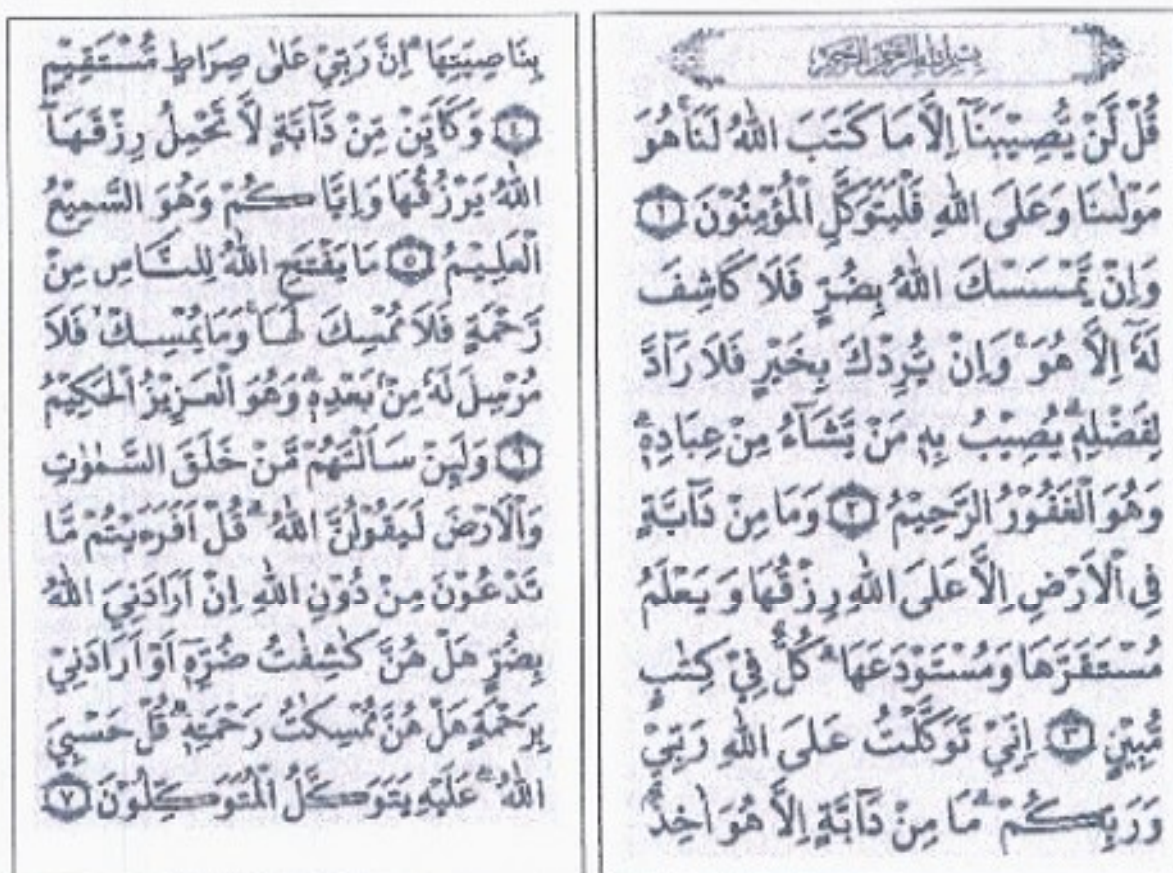 بِسْمِ اللهِ الرَّحْمٰنِ الرَّحِيْمِ
قُلْ لَّنْ يُّصِيْبَنَآ اِلَّا مَا كَتَبَ اللهُ لَنَا ۚ هُوَ
مَوْلٰىنَا وَعَلَى اللهِ فَلْيَتَوَكَّلِ الْمُؤْمِنُوْنَ ﴿۱﴾
وَاِنْ يَّمْسَسْكَ اللهُ بِضُرٍّ فَلَا كَاشِفَ
لَهٗٓ اِلَّا هُوَ ۚ وَاِنْ يُّرِدْكَ بِخَيْرٍ فَلَا رَآدَّ
لِفَضْلِهٖ ؕ يُصِيْبُ بِهٖ مَنْ يَّشَآءُ مِنْ عِبَادِهٖ ؕ
وَهُوَ الْغَفُوْرُ الرَّحِيْمُ ﴿۲﴾ وَمَا مِنْ دَآبَّةٍ
فِي الْاَرْضِ اِلَّا عَلَى اللهِ رِزْقُهَا وَيَعْلَمُ
مُسْتَقَرَّهَا وَمُسْتَوْدَعَهَا ؕ كُلٌّ فِيْ كِتٰبٍ
مُّبِيْنٍ ﴿۳﴾ اِنِّيْ تَوَكَّلْتُ عَلَى اللهِ رَبِّيْ
وَرَبِّكُمْ ؕ مَا مِنْ دَآبَّةٍ اِلَّا هُوَ اٰخِذٌۢ
بِنَاصِيَتِهَا ؕ اِنَّ رَبِّيْ عَلٰى صِرَاطٍ مُّسْتَقِيْمٍ
﴿٤﴾ وَكَاَيِّنْ مِّنْ دَآبَّةٍ لَّا تَحْمِلُ رِزْقَهَا ۖ
اللهُ يَرْزُقُهَا وَاِيَّاكُمْ وَهُوَ السَّمِيْعُ
الْعَلِيْمُ ﴿٥﴾ مَا يَفْتَحِ اللهُ لِلنَّاسِ مِنْ
رَّحْمَةٍ فَلَا مُمْسِكَ لَهَا ۚ وَمَا يُمْسِكْ ۙ فَلَا
مُرْسِلَ لَهٗ مِنْۢ بَعْدِهٖ ؕ وَهُوَ الْعَزِيْزُ الْحَكِيْمُ
﴿٦﴾ وَلَئِنْ سَاَلْتَهُمْ مَّنْ خَلَقَ السَّمٰوٰتِ
وَالْاَرْضَ لَيَقُوْلُنَّ اللهُ ؕ قُلْ اَفَرَءَيْتُمْ مَّا
تَدْعُوْنَ مِنْ دُوْنِ اللهِ اِنْ اَرَادَنِيَ اللهُ
بِضُرٍّ هَلْ هُنَّ كٰشِفٰتُ ضُرِّهٖٓ اَوْ اَرَادَنِيْ
بِرَحْمَةٍ هَلْ هُنَّ مُمْسِكٰتُ رَحْمَتِهٖ ؕ قُلْ حَسْبِيَ
اللهُ ؕ عَلَيْهِ يَتَوَكَّلُ الْمُتَوَكِّلُوْنَ ﴿۷﴾